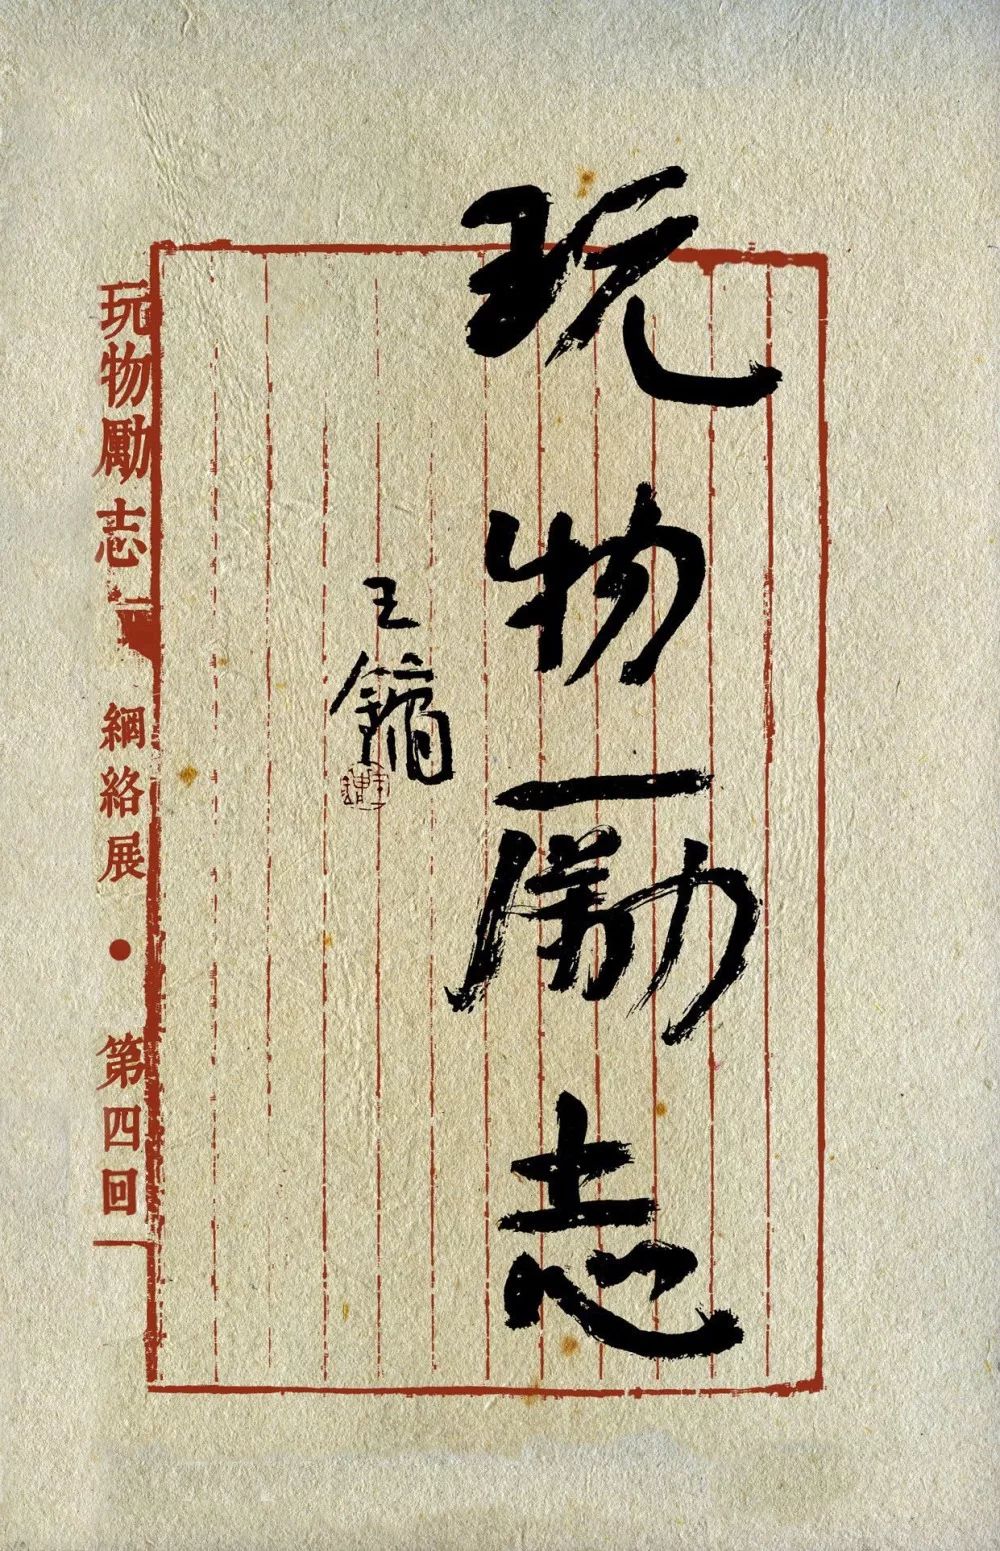 玩物励志
王镛
玩物勵志
網絡展 • 第四回